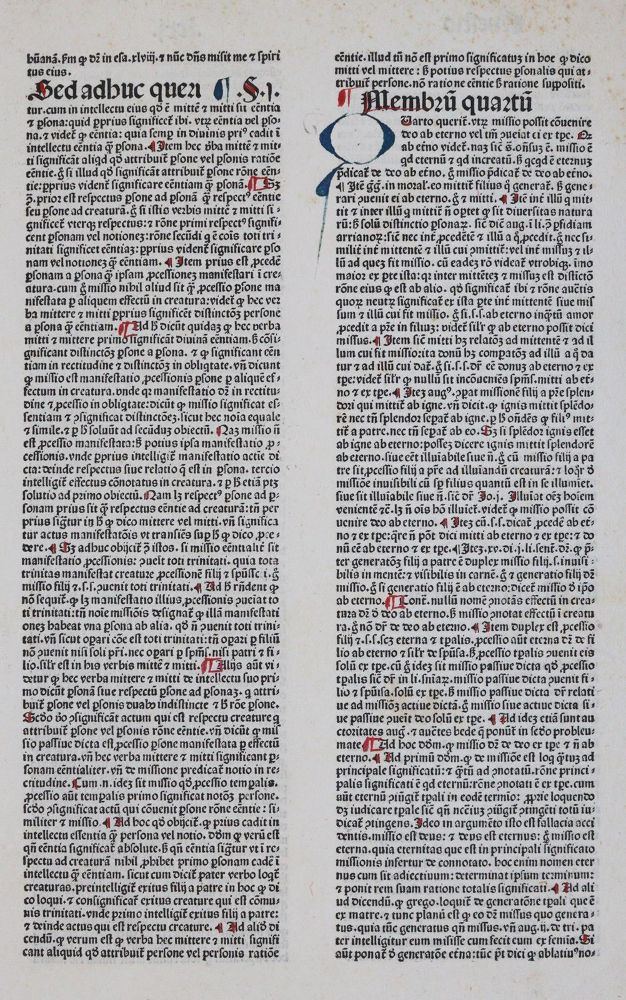 hūanā. s̄m ꝙ dr̄ in esa. xlviij. & nūc dn̄s misit me & spiri
tus eius.
Sed adhuc queri ¶ .S.j.
tur. cum in intellectu eius qd̄ ē mittē & mitti sit eēntia
& ꝑsona: quid ꝓprius significēt ibi. vtrū eēntia vel ꝑso-
na. & videt̄ ꝙ eēntia: quia semꝑ in diuinis pri⁹ cadit ī
intellectu eēntia ꝙ̄ ꝑsona. ¶ Item hec ꝟba mittē & mit-
ti significāt aliqd qd̄ attribuit̄ ꝑsone vel ꝑsonis ratiōe
eēntie. ḡ si illud qd̄ significāt attribuit̄ ꝑsone rōne eēn-
tie: ꝓprius vident̄ significare eēntiam ꝙ̄ ꝑsonā. ¶ Sȝ
ꝯ. prior est respectus ꝑsone ad ꝑsonā ꝙ̄ respect⁹ eēntie
seu ꝑsone ad creaturā. ḡ si istis verbis mittē & mitti si-
gnificēt vterqꝫ respectus: & rōne primi respect⁹ signifi-
cent ꝑsonam vel notionez: rōne secūdi q̄ ē cōis toti tri-
nitati significēt eēntiaz: ꝓprius vident̄ significare ꝑso
nam vel notionez ꝙ̄ eēntiam. ¶ Item prius est ꝓcedē
ꝑsonam a ꝑsona ꝙ̄ ipsam ꝓcessionez manifestari ī cre-
atura. cum ḡ missio nihil aliud sit ꝙ̄ ꝓcessio ꝑsone ma
nifestata ꝑ aliquem effectū in creatura: videt̄ ꝙ hec ver
ba mittere & mitti ꝓprius significēt distinctōȝ ꝑsone
a ꝑsona ꝙ̄ eēntiam. ¶ Ad h̄ dicūt quidaȝ ꝙ hec verba
mitti & mittere primo significāt diuinā eēntiam. s̄ cōsi-
gnificant distinctōȝ ꝑsone a ꝑsona. & ꝙ significant eēn
tiam in rectitudine & distinctōȝ in obliqtate. vn̄ dicunt
ꝙ missio est manifestatio ꝓcessionis ꝑsone ꝑ aliquē ef-
fectum in creatura. vnde qꝛ manifestatio dr̄ in rectitu-
dine & ꝓcessio in obliqtate: dicūt ꝙ missio significat es-
sentiam & ꝯsignificat distinctōeȝ. sicut hec noīa equale
& simile. & ꝑ h̄ soluūt ad secūduȝ obiectū. ¶ Qꝛ missio n̄
est ꝓcessio manifestata: s̄ potius ipsa manifestatio ꝓ-
cessionis. vnde ꝓprius intelligit̄ manifestatio actiue di
cta: deinde respectus siue relatio q̄ est in ꝑsona. tercio
intelligit̄ effectus cōnotatus in creatura. & ꝑ h̄ etiā ptȝ
solutio ad primo obiectū. ¶ Nam lȝ respect⁹ ꝑsone ad ꝑ-
sonam prius sit ꝙ̄ respectus eēntie ad creaturā: tn̄ ꝑer
prius sigt̄ur in h̄ ꝙ dico mittere vel mitti. vn̄ significa
tur actus manifestatōis vt transiēs suꝑ h̄ ꝙ dico ꝓce-
dere. ¶ Sȝ adhuc obijcit̄ ꝯ istos. si missio eēntialit̄ sit
manifestatio ꝓcessionis: ꝯuēit toti trinitati. quia tota
trinitas manifestat creature ꝓcessionē filij & spūssci̅. ḡ
missio filij & s.s. ꝯuenit toti trinitati. ¶ Ad h̄ rn̄dent ꝙ
nō sequit̄. ꝙ lȝ manifestatio illius ꝓcessionis ꝯueiat to
ti trinitati: tn̄ noīe missiōis designat̄ ꝙ illā manifestati
onez habeat vna ꝑsona ab alia. qd̄ n̄ ꝯuenit toti trini-
tati. vn̄ sicut oꝑari cōe est toti trinitati: tn̄ oꝑari ꝑ filiū
nō ꝯuenit nisi soli pri̅. nec oꝑari ꝑ spm̅s. nisi patri & fi-
lio. sil̅r est in his verbis mittē & mitti. ¶ Alijs aūt vi-
detur ꝙ hec verba mittere & mitti de intellectu suo pri-
mo dicūt ꝑsonā siue respectū ꝑsone ad ꝑsonaȝ. q̄ attri-
buit̄ ꝑsone vel ꝑsonis duabꝰ indistincte & h̄ rōe ꝑsone.
Scdo ꝟo ꝯsignificāt actum qui est respectu creature q̄
attribuit̄ ꝑsone vel ꝑsonis rōne eēntie. vn̄ dicūt ꝙ mis
sio passiue dicta est ꝓcessio ꝑsone manifestata ꝑ effectū
in creatura. vn̄ hec verba mittere & mitti significāt ꝑso
nam eēntialiter. vn̄ de missione predicat̄ notio in re-
ctitudine. ¶ Cum. n. ideȝ sit missio qd̄ ꝓcessio tempalis.
ꝓcessio aūt tempalis primo significat notōȝ ꝑsone.
scdo ꝯsignificat actū qui cōuenit ꝑsone rōne eēntie: si-
militer & missio. ¶ Ad hoc qd̄ obijcit̄. ꝙ prius cadit in
intellectu essentia ꝙ̄ persona vel notio. ddm̄ ꝙ verū est
qn̄ eēntia significat̄ absolute. s̄ qn̄ eēntia sigt̄ur vt ī re-
spectu ad creaturā nihil ꝓhibet primo ꝑsonam cadē ī
intellectu ꝙ̄ eēntiam. sicut cum dicit̄ pater verbo loqt̄
creaturas. preintelligit̄ exitus filij a patre in hoc ꝙ di
co loqui. & consignificat̄ exitus creature qui est cōmu-
nis trinitati. vnde primo intelligit̄ exitus filij a patre:
& deinde actus qui est respectu creature. ¶ Ad aliō di
cendū. ꝙ verum est ꝙ verba hec mittere & mitti signifi
cant aliquid qd̄ attribuit̄ persone vel personis ratiōe
eēntie. illud tn̄ nō est primo significatuȝ in hoc ꝙ dico
mitti vel mittere: s̄ potius respectus ꝑsonalis qui at-
tribuit̄ persone. nō ratione eēntie s̄ ratione suppositi.
¶ Membrū quartū
Quarto querit̄. vtrȝ missio possit cōuenire
deo ab eterno vel tm̄ ꝯueiat ei ex tpe. Qꝛ
ab etno videt̄. naȝ sic̄ s. oñsuȝ ē. missio ē
qd eternū & qd increatū. s̄ qcqd ē eternuȝ
p̄dicat̄ de deo ab etno. ḡ missio p̄dicat̄ de deo ab etno.
¶ Itē g̅g̅. in moral. eo mittit̄ filius q̄ generat̄. s̄ gene-
rari ꝯuenit ei ab eterno. ḡ & mitti. ¶ Itē int̄ illū q mit-
tit & inter illū q mittit̄ n̄ optȝ ꝙ sit diuersitas natura
rū: s̄ solū distinctio ꝑsonaȝ. sic̄ dt̄ aug. i l. ꝯ ꝑfidiam
arrianoȝ: sic̄ nec int̄ ꝓcedētē & illū a q ꝓcedit. ḡ nec si-
milit̄ int̄ mittentē & illū cui ꝯmittit̄: vel int̄ missuȝ & il-
lū ad queȝ fit missio. cū eadeȝ rō videat̄ vtrobiqꝫ. īmo
maior ex ꝑte ista: qꝛ inter mittēteȝ & missuȝ est distinctō
rōne eius ꝙ est ab alio. qd̄ significat̄ ibi & rōne auctis
quoꝝ neutꝝ significat̄ ex ista ꝑte int̄ mittentē siue mis
sum & illū cui fit missio. ḡ s̄. s.s. ab eterno inq̄tū amor
ꝓcedit a pr̄e in filiuȝ: videt̄ sil̅r ꝙ ab eterno possit dici
missus. ¶ Item sic̄ mitti hȝ respectū ad mittentē & ad il
lum cui fit missio: ita donū hȝ cōꝑatōȝ ad illū a q̄ da
tur & ad illū cui dat̄. ḡ si. s.s. dr̄ eē donuȝ ab eterno & ex
tpe: videt̄ sil̅r ꝙ nullū sit incōueniēs spm̅s. mitti ab et-
no & ex tpe. ¶ Iteȝ aug⁹. ꝯpat missionē filij a pr̄e splen-
dori qui mittit̄ ab igne. vn̄ dicit. ꝙ ignis mittit splēdo-
rē nec tn̄ splendor seꝑat̄ ab igne. ꝑ h̄ oñdēs ꝙ fili⁹ mit-
tit̄ a patre. nec tn̄ seꝑat̄ ab eo. Sȝ si splēdor ignis esset
ab igne ab eterno: posseȝ dicere ignis mittit splendorē
ab eterno. siue eēt illuiabile siue n̄. ḡ cū missio filij a pa
tre sit ꝓcessio filij a pr̄e ad illuiandū creaturā: & loqꝛ d̄
missiōe inuisibili cū ꝑ filius quantū est in se illuminet.
siue sit illuiabile siue n̄. sic̄ dr̄ Io. j. Illuiat oēȝ hoīem
venientē &c. lȝ n̄ oīs hō illuiet̄. videt̄ ꝙ missio possit cō
uenire deo ab eterno. ¶ Iteȝ cū. s.s. dicat̄ ꝓcedē ab et-
no & ex tpe: qre n̄ pōt dici mitti ab eterno & ex tpe: & do
nū eē ab eterno & ex tpe. ¶ Iteȝ. xv. di. j. li. sent̄. dr̄. ꝙ p̄-
ter generatōȝ filij a patre ē duplex missio filij. s. inuisi-
bilis in mente: & visibilis in carne. ḡ & generatio filij dr̄
missio. ḡ si generatio filij ē ab eterno: dicet̄ missio d̄ ipso
ab eterno. ¶ Cont̄. nullū nomē ꝯnotās effectū in crea-
tura dr̄ d̄ deo ab eterno. s̄ missio ꝯnotat effectū ī creatu
ra. ḡ nō dr̄ de deo ab eterno. ¶ Item duplex est ꝓcessio
filij & s.s. sc̄ȝ eterna & tꝑalis. ꝓcessio aūt eterna dr̄ de fi
lio ab eterno & sil̅r de spūsā. s̄ ꝓcessio tꝑalis ꝯuenit eis
solū ex tpe. cū ḡ ideȝ sit missio passiue dicta qd̄ ꝓcessio
tꝑalis sic̄ dr̄ in li. sniaꝝ. missio passiue dicta ꝯuenit fi-
lio & spūsā. solū ex tpe. s̄ missio passiue dicta dr̄ relati-
ue ad missiōȝ actiue dictā. ḡ missio siue actiue dicta si-
ue passiue ꝯueīt deo solū ex tpe. ¶ Ad ideȝ etiā sunt au
ctoritates aug. & auctēs bede q̄ ponūt̄ in scdo problēu-
mate ¶ Ad hoc ddm̄. ꝙ missio dr̄ de deo ex tpe & n̄ ab
eterno. ¶ Ad primū ddm̄. ꝙ de missiōe est loq̄ q̄tuȝ ad
principale significatū: & q̄tū ad ꝯnotatū. rōne princi-
palis significati ē qd eternū: rōne ꝯnotati ē ex tpe. cum
aūt eternū ꝯiūgit̄ tꝑali in eodē termīo: ꝓprie loquendo
dȝ iudicare tꝑale sic̄ qn̄ nc̄ciuȝ ꝯiūgit̄ ꝯtingēti totū iu-
dicat̄ ꝯtingens. Ideo in argumēto isto est fallacia acci
dentis. missio est deus: & deus est eternus: ḡ missio est
eterna. quia eternitas que est in principali significato
missionis infertur de connotato. hoc enim nomen eter
nus cum sit adiectiuum: determinat ipsum terminum:
& ponit rem suam ratione totalis significati. ¶ Ad ali
ud dicendū. ꝙ grego. loquit̄ de generatōne tꝑali que ē
ex matre. & tunc planū est ꝙ eo dr̄ missus quo genera-
tus. quia tūc generatus qn̄ missus. vn̄ aug. ij. de tri. pa
ter intelligitur eum misisse cum fecit eum ex femīa. Si
aūt ponat̄ d̄ generatōe etna: tūc p̄t dici ꝙ ablatiu⁹ no-